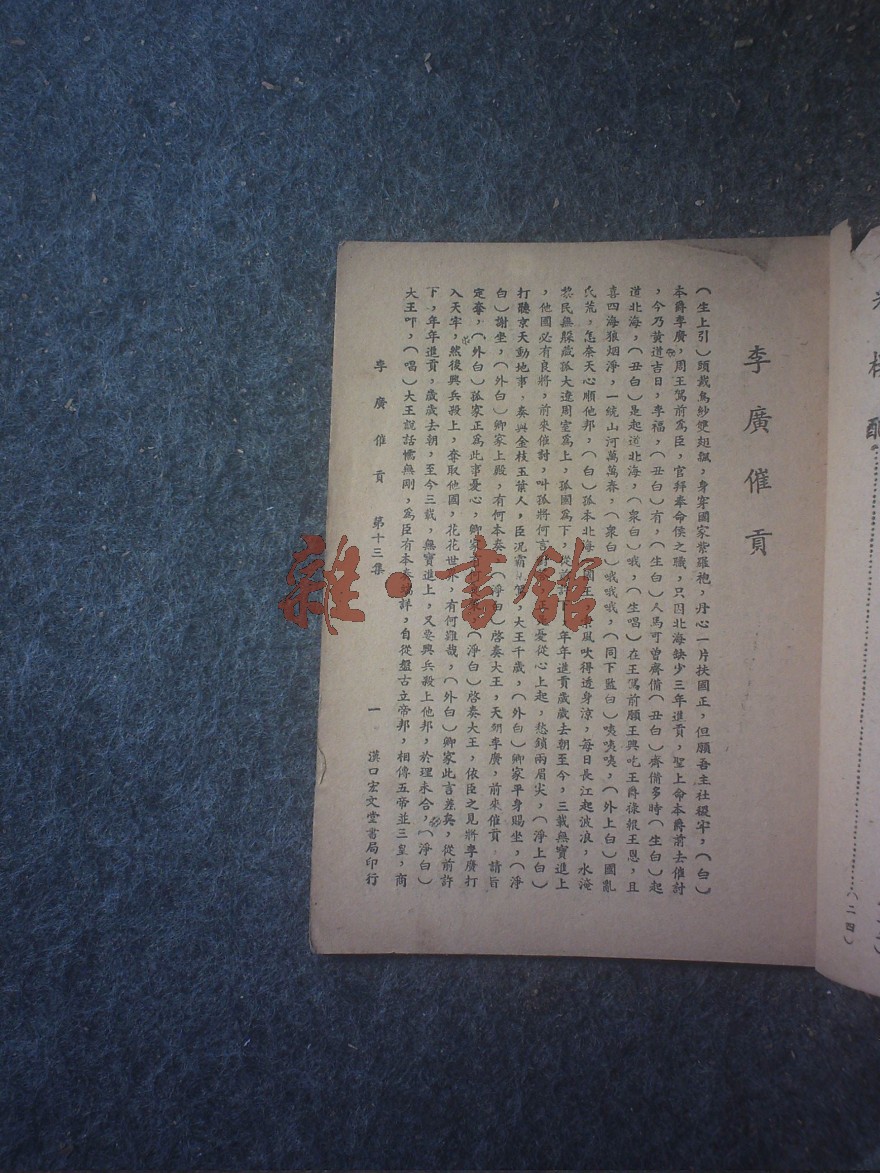 李廣催貢
(生上引)頭戴烏紗雙翅飄,身穿國家紫羅袍,丹心一片扶國正,但願吾主社稷牢,(白)
本爵李廣,周王駕前爲臣,官拜奉命侯之職,只因北海缺少三年進貢,聖上命本爵前去催討
,今乃黃道吉日,李福,(丑白)有,(生白)人馬可曾齊備(丑白)齊備多時(生白)起
道北海,(丑白)是起道北海,(衆白)哦,(生唱)在王駕前願王興吃王爵祿報王恩,且
喜四海狼烟淨,一統山河萬萬春,(衆白)哦哦哦,(同下監白)咦咦咦,(外上白)國亂
民荒,怎奈天心順他邦,(白)孤本北海國王風吹得透身涼,每日長江起波浪,水淹
黎民無躱藏孤大遼周室爲上,孤國爲下,從年年進貢歲歲去朝至今,三載無寶進上
,他國必有良將,前來催討,叫孤將何言憂從心上起,愁鎖兩眉尖,(淨上白)
打聽京天動地事,奏與金枝玉葉人,臣況霸駕,大王千歲,(外白)卿家平身賜坐,(淨
白)謝坐,(外白)卿家上殿,有何本奏(淨白)啓奏大王,天朝李廣,前來催貢,請旨
定奪,(外白)孤家正爲此事憂心,卿家(淨白)啓奏大王,依臣之見將李廣打
入天牢,然後興兵殺上,奪取他國,花花世界,有何難哉,(外白)卿家此言差矣,從前許
下,年年進貢,歲歲去朝,至今三載,無寶進上,又要興兵殺上他邦,於理未合,(淨白)
大王吓,(唱)大王說話懦無剛,爲臣有本奏端詳,自從盤古立帝邦,相傳五帝並三皇,商
李廣催貢 第十三集 一 漢口宏文堂書局印行
(二四)
雜·書館